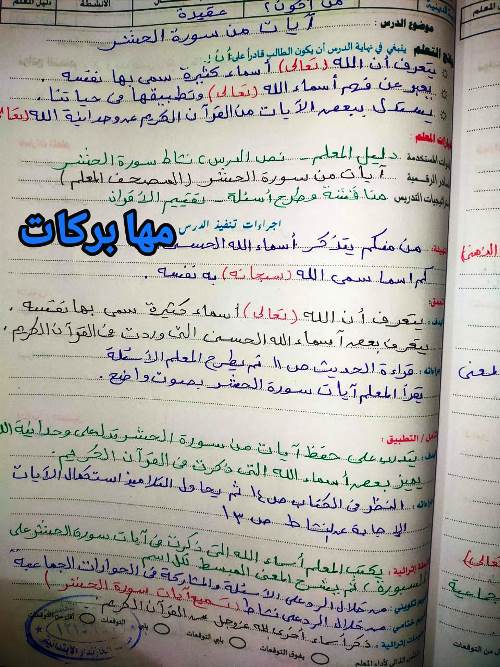 من أكون؟ عقيدة
موضوع الدرس : آيات من سورة الحشر
نواتج التعلم ينبغي في نهاية الدرس أن يكون الطالب قادرا على أن :
يتعرف أن الله (تعالى) أسماء كثيرة سمى بها نفسه .
يعبر عن فهم أسماء الله (تعالى) وتطبيقها فى حياتنا .
يستدل ببعض الآيات من القرآن الكريم عن وحدانية الله (تعالى)
المعلم :
المستخدمة دليل المعلم - نص الدرس ، نشاط سورة الحشر
الرقمية آيات من سورة الحشر (المصحف المعلم)
التدريس مناقشة وطرح أسئلة - تقييم الأقران
اجراءات تنفيذ الدرس
مها بركات
من منكم يتذكر أسماء الله الحسنى
كم اسما سمى الله (سبحانه) به نفسه .
يتعرف أن الله (تعالى) أسماء كثيرة سمى بها نفسه .
يتعرف بعض أسماء الله الحسنى التى وردت فى القرآن الكريم .
قراءة الحديث ص ١١ ثم يطرح المعلم الأسئلة
يقرأ المعلم آيات سورة الحشر بصوت واضح .
/ التطبيق :
يتدرب على حفظ آيات من سورة الحشر تدل على وحدانية
يميز بعض أسماء الله التى ذكرت فى القرآن الكريم .
النظر فى الكتاب ص ١٤ ثم يحاول التلاميذ استكمال الآيات
الإجابة عن نشاط ص ١٣
يكتب المعلم أسماء الله التى ذكرت فى آيات سورة الحشر على
السبورة ، ثم يشرح المعنى المبسط لكل اسم
من خلال الرد على الأسئلة والمشاركة فى الحوارات الجماعية
من خلال الرد على نشاط (تسميع آيات سورة الحشر)
ذكر أسماء أخرى لله عز وجل من القرآن الكريم
يفوق التوقعات
يلبي التوقعات
يلبي التوقعات
أقل من التوقعات